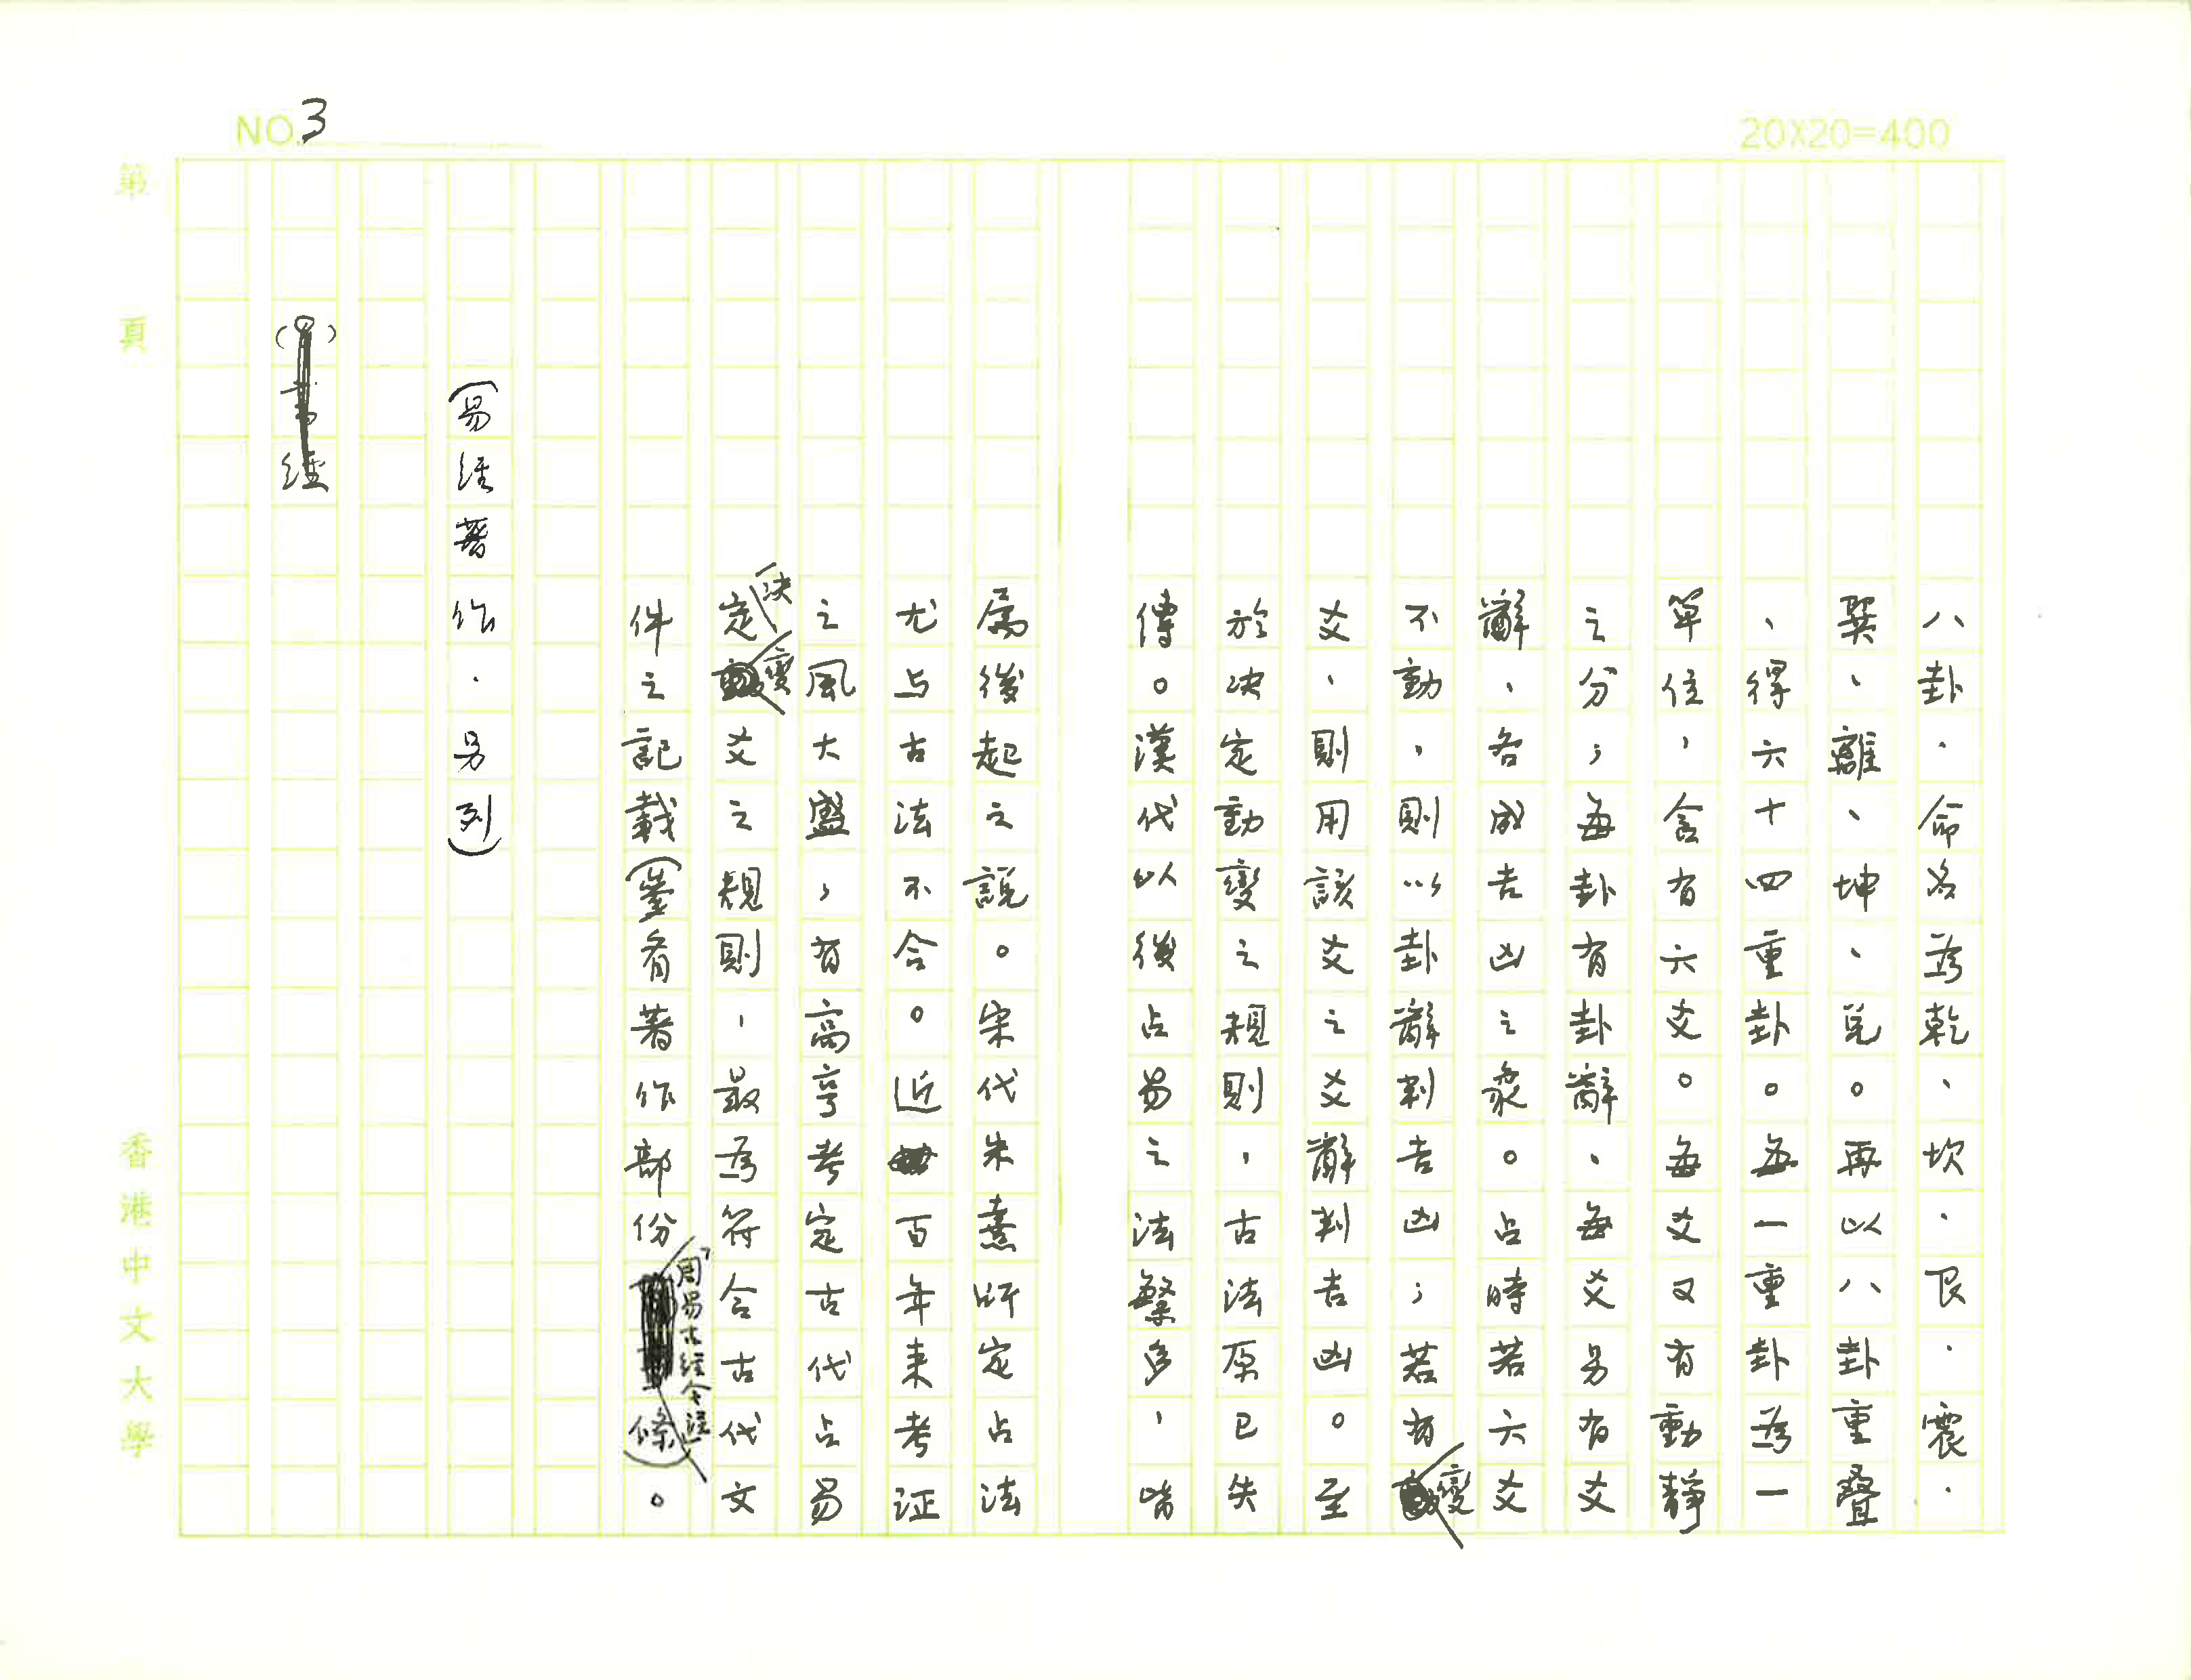 NO. 3
20X20=400
八卦．命名為乾、坎．艮．震．
巽、離、坤、兌。再以八卦重疊
、得六十四重卦。每一重卦為一
單位，含有六爻。每爻又有動靜
之分；每卦有卦辭、每爻另有爻
辭、各成吉凶之彖。占時若六爻
不動，則以卦辭判吉凶；若有變
爻、則用該爻之爻辭判吉凶。至
於決定動變之規則，古法原已失
傳。漢代以後占易之法繁多，皆
屬後起之說。宋代朱熹所定占法
尤与古法不合。近百年来考证
之風大盛，有高亨考定古代占易
決定變爻之規則，最為符合古代文
件之記載（參看著作部份「周易古經今注」條）。
（易经著作．另列）
第 頁
香港中文大學